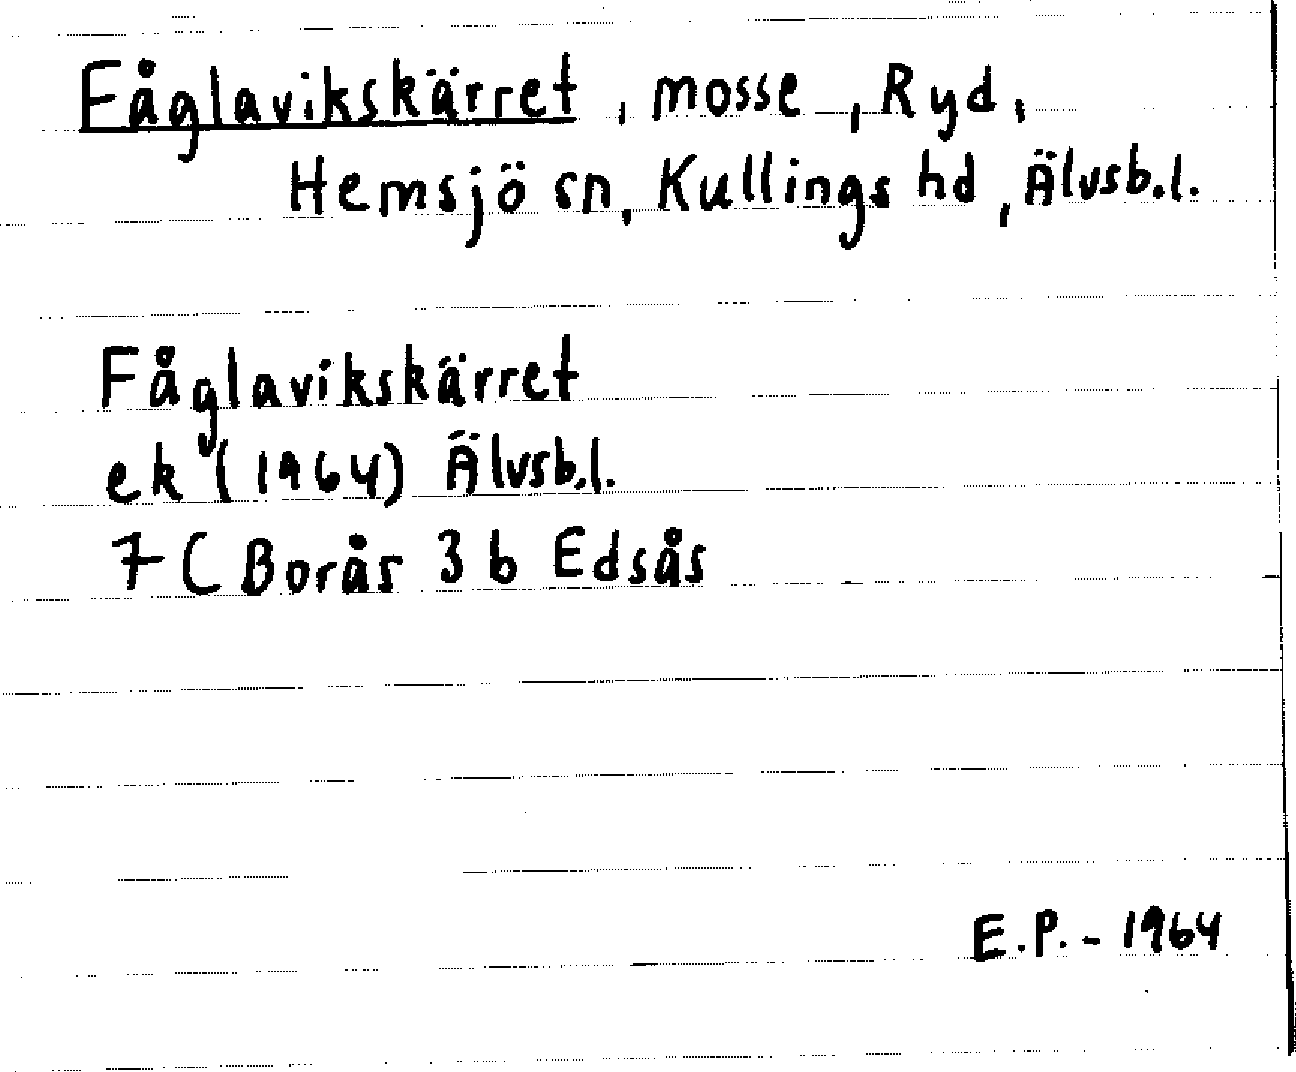 Fåglavikskärret, mosse, Ryd,
Hemsjö sn, Kullings hd, Älvsb.l.
Fåglavikskärret
ek (1964) Älvsb.l.
7C Borås 3b Edsås
E.P. - 1964